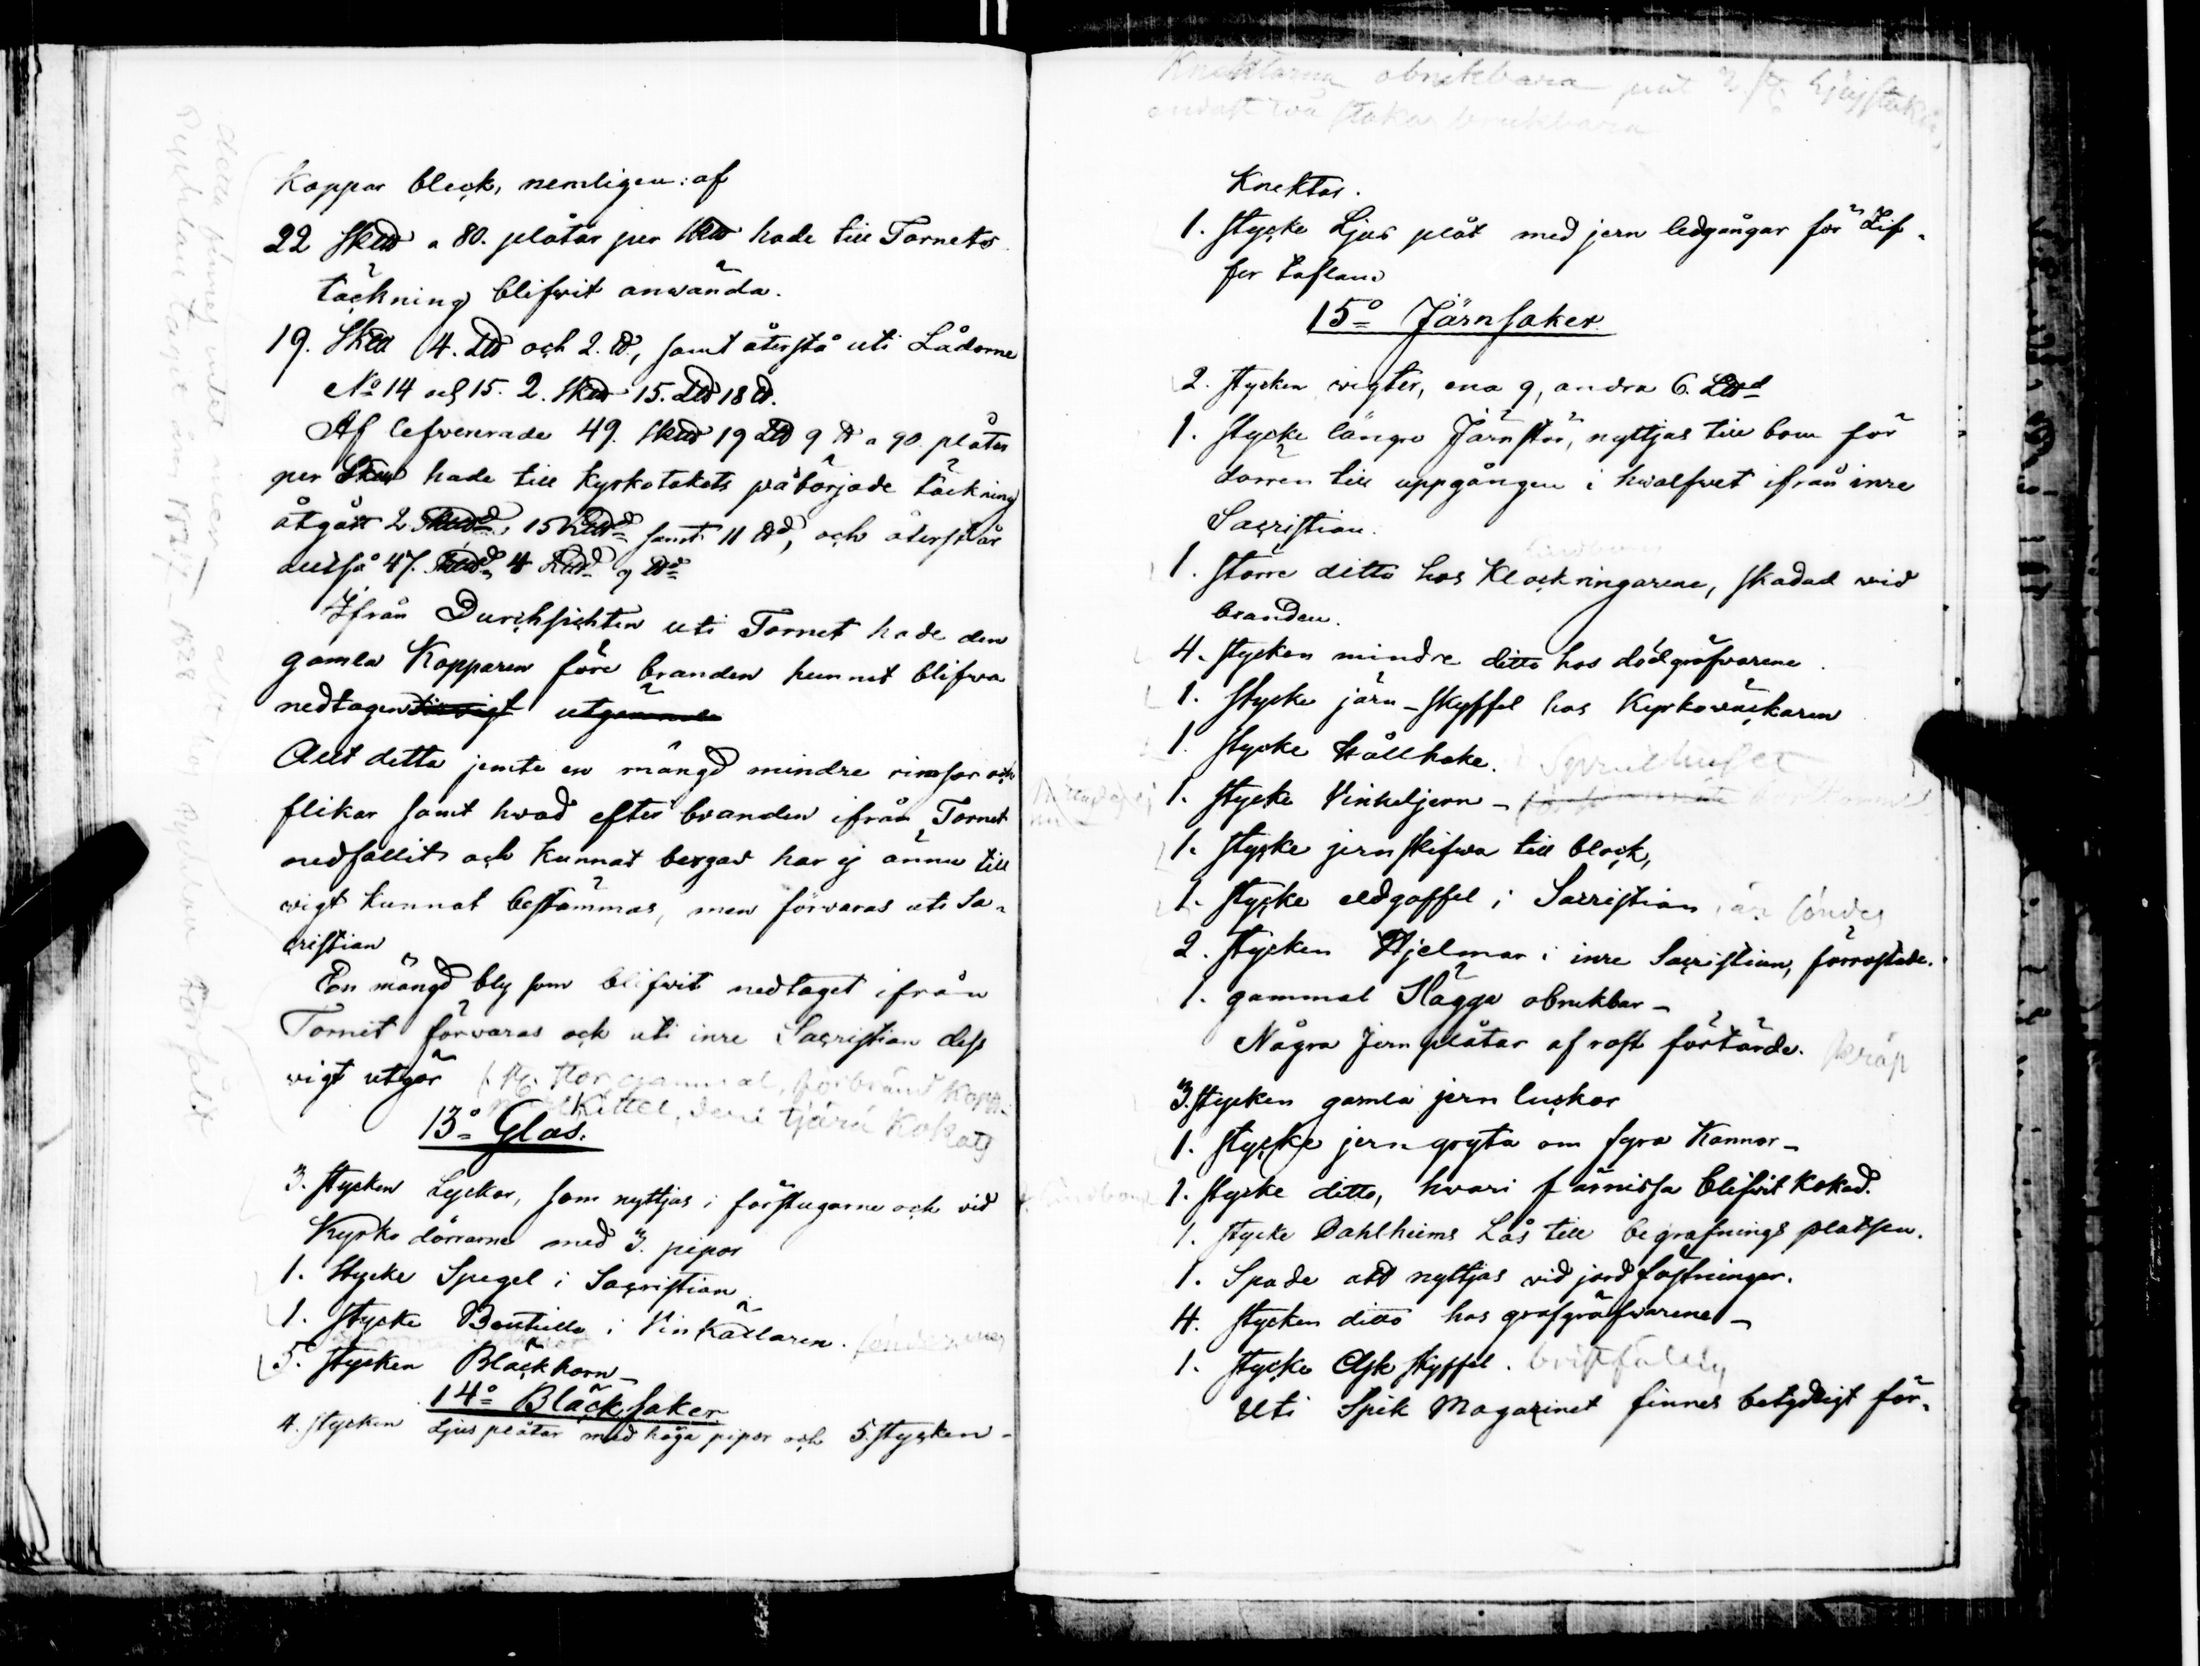 Koppar bleck, nemligen: af
22 Sk℔ a 80. plåtar per Sk℔ hade till Tornets
täckning blifwit använda.
19. Sk℔ 4. L℔ och 2. ℔, samt återstå uti Lådorne
No 14 och 15. 2. Sk℔ 15. L℔ 18 ℔.
Af lefwererade 49. Sk℔ 19 L℔ 9 ℔ a 90. plåter
per Sk℔ hade till Kyrkotakets påbörjade täckning
åtgått 2 Sk℔, 15 L℔ samt 11 ℔, och återstår
altså 47. Sk℔ 4 L℔ 9 ℔
Ifrån Durchsichten uti Tornet hade den
gamla Kopparen före branden hunnit blifwa
nedtagen
Allt detta jemte en mängd mindre rimsor och
flikar samt hwad efter branden ifrån Tornet
nedfallit och kunnat bergas har ej ännu till
wigt kunnat bestämmas, men förwaras uti Sa-
cristian
En mängd bly som blifwit nedtaget ifrån
Tornet förwaras ock uti inre Sacristian dess
wigt utgör
1 st. stor gammal, förbränd Kopp.
Kittel, deri tjära Kokats
13o Glas.
3. stycken Lyckor, som nyttjas i förstugorne och vid
Kyrko dörrarne med 3. pipor
1. Stycke Spegel i Sacristian
1. Stycke Bouteille i Vinkällaren.
5. stycken Bläckhorn
14o Bläcksaker
4. stycken Ljus plåtar med höga pipor och 5. stycken
Knektarna obrukbara
endast två stakar brukbara
Knektar.
1. stycke Ljus plåt med jern ledgångar för Zif-
fer taflan
15o Järnsaker
2. stycken wigter, ena 9, andra 6. L℔
1. stycke längre Järnstör, nyttjas till bom för
dörren till uppgången i hwalfwet ifrån inre
Sacristian.
1. större ditto hos Klockringarene, skadad wid
branden.
4. stycken mindre ditto hos dödgräfwarene.
1. Stycke järn-skyffel hos Kyrkowäckaren
1. stycke Hållhake. Spruthuset
1. stycke Vinkeljern
1. stycke jernskifwa till block,
1. stycke eldgaffel i Sacristian, är sönder
2. stycken Hjelmar i inre Sacristian, förrostade.
1. gammal Slägga obrukbar
Några Jern plåtar af rost förtärde. skräp
3. stycken gamla jern luckor
1. stycke jern gryta om fyra Kannor
1. stycke ditto, hwari färnissa blifwit kokad.
1. stycke Dahlheims Lås till begrafnings platsen.
1. Spade att nyttjas vid jordfästningar.
4. stycken ditto hos grafgräfwarene
1. stycke Ask skyffel. bristfällig
Uti Spik Magazinet finnes betydligt för-